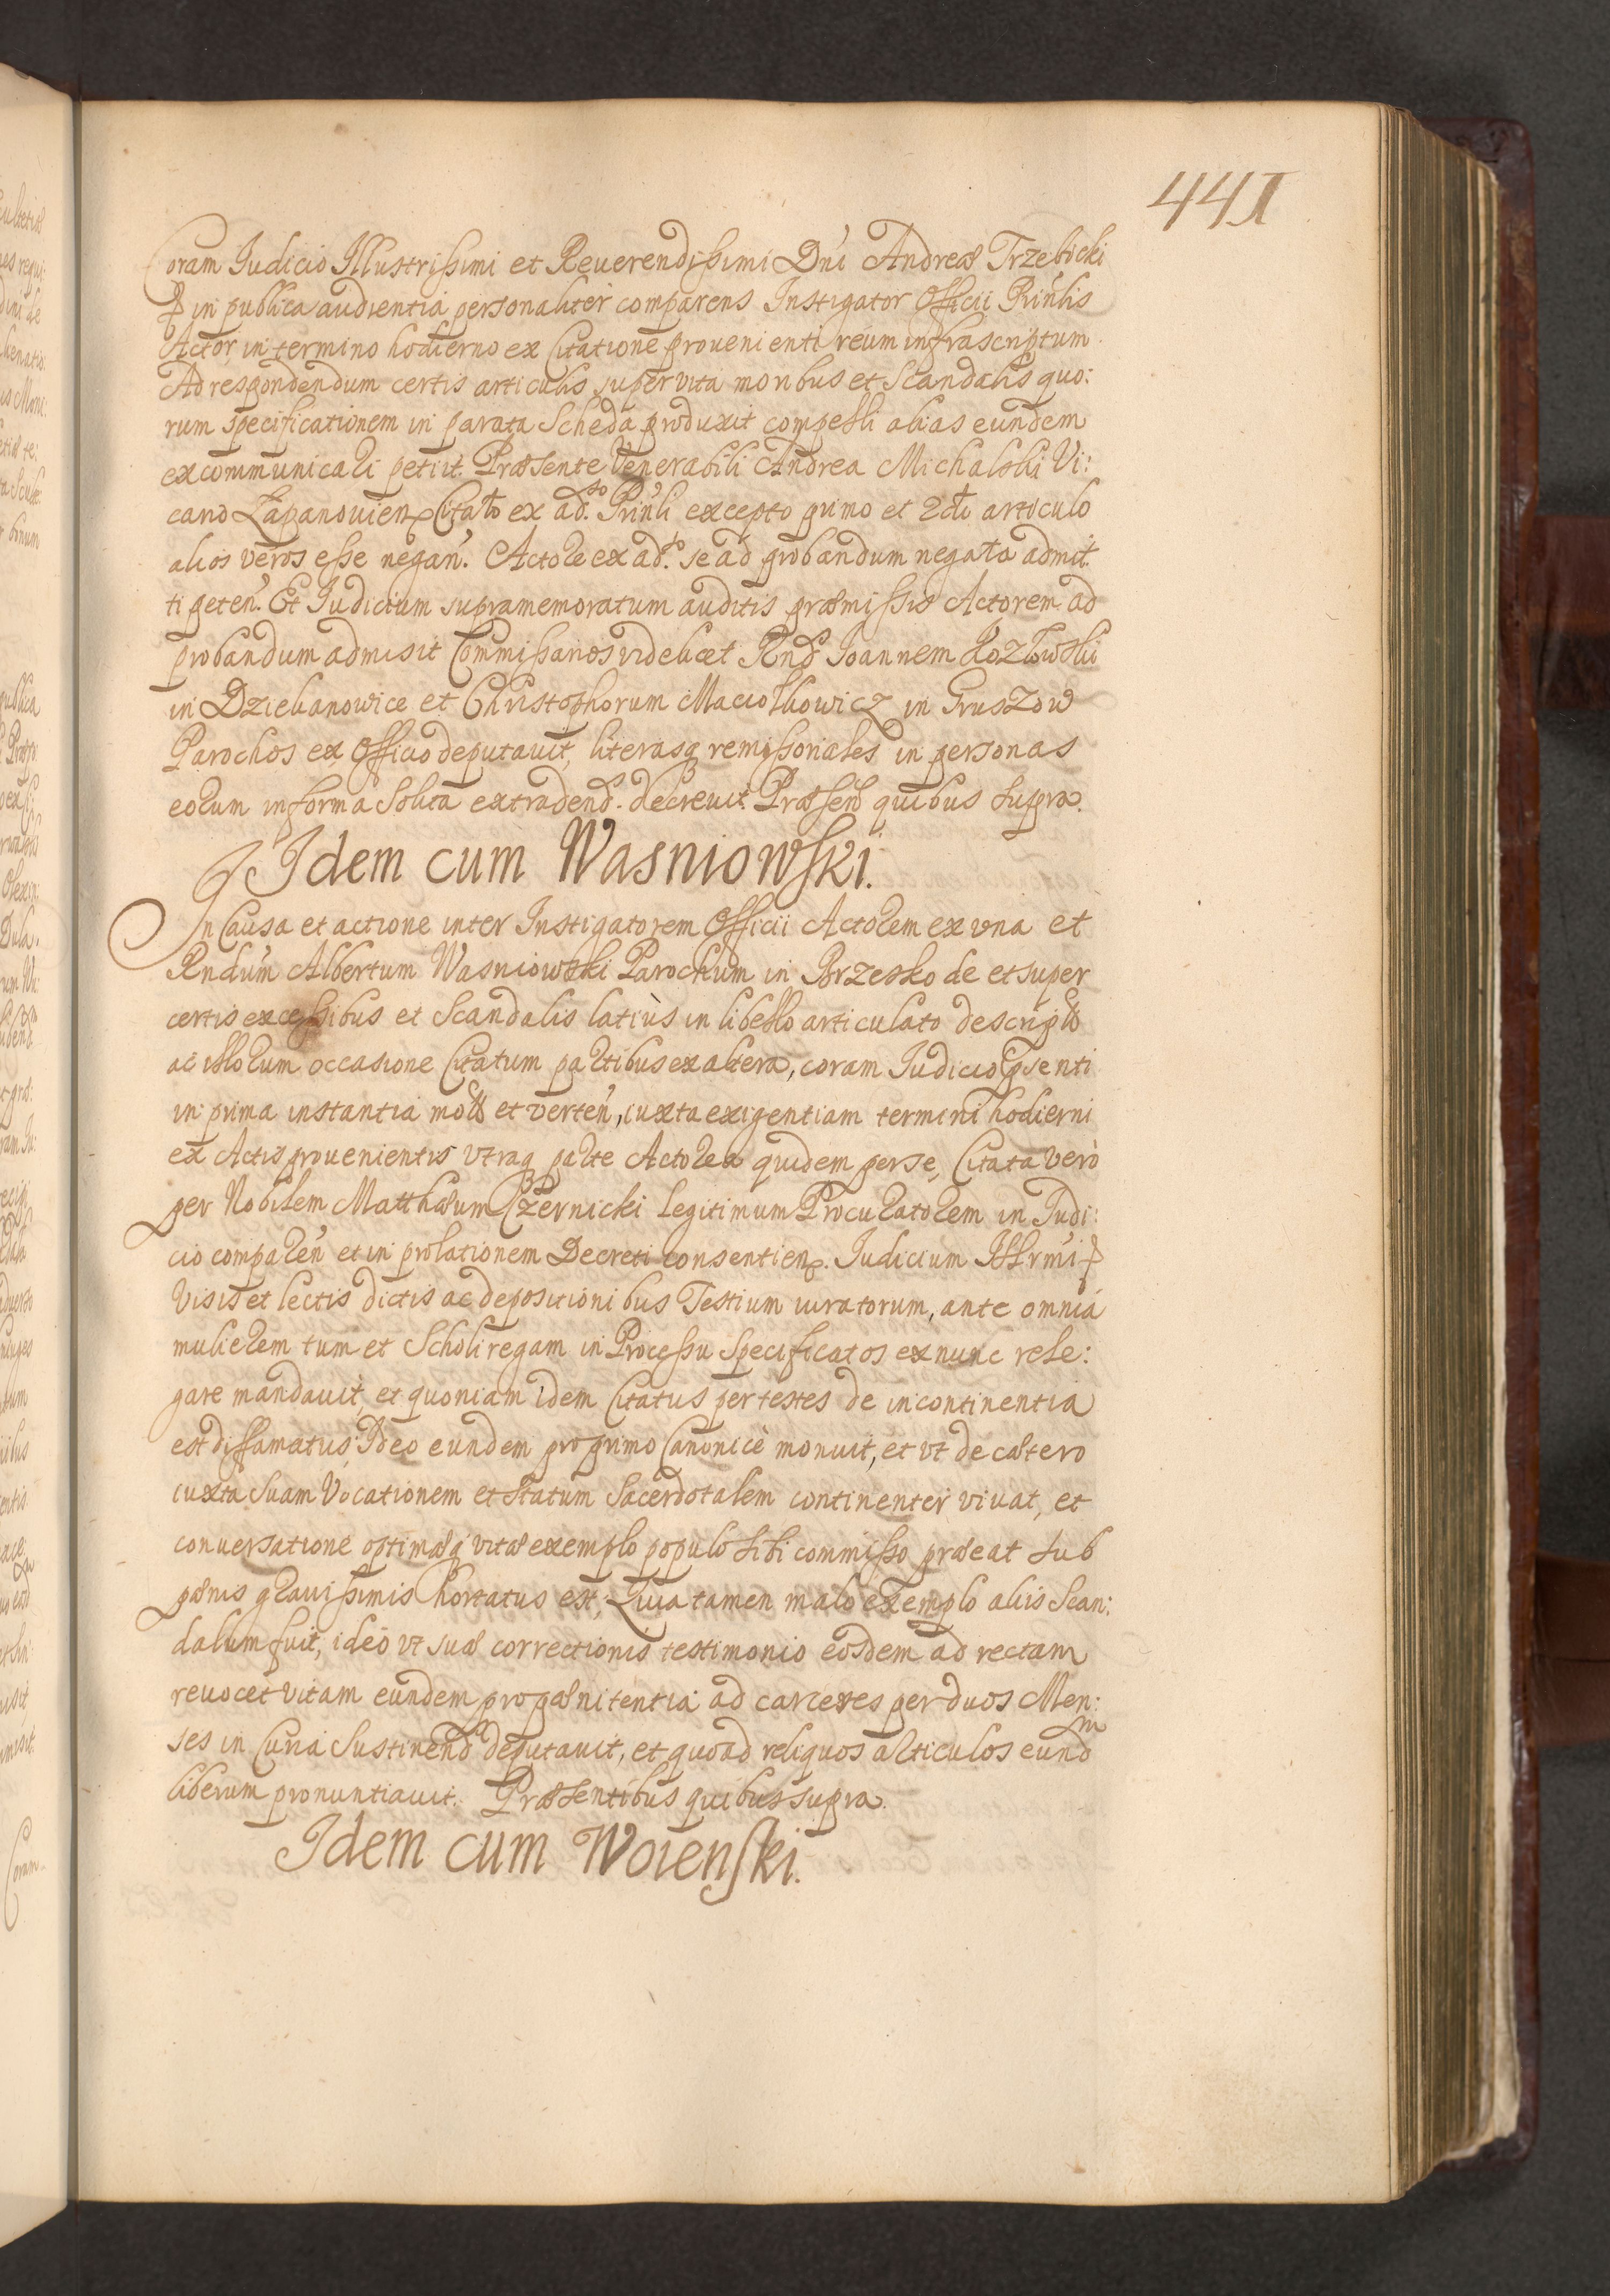 441
Coram Judicio Illustrissimi et Reuerendissimi Dńi Andreæ Trzebicki
in publica audientia personaliter comparens Instigator Officii Pńńlis
Actor, in termino hodierno ex Citatione prouenienti reum infrascriptum
Ad respondendum certis articulis super vita moribus et Scandalis quo:
rum specificationem in parata Scheda produxit compelli alias eundem
excommunicari petiit. Præsente Venerabili Andrea Michalski Vi:
cario Łapanouien Citato ex ad.so Pńńli excepto primo et 2do articulo
alios veros esse negań. Actore ex ad.so se ad probandum negata admit
ti peteń. Et Judicium supramemoratum auditis præmissis Actorem ad
probandum admisit Commissarios videlicet Rńd Joannem Kozłowski
in Dziekanowice et Christophorum Maciołkowicz in Gruszow
Parochos ex Officio deputauit, literasq remissoriales in personas
eorum in forma Solita extradend. decreuit. Præsen quibus Supra.
Idem cum Wasniowski.
In Causa et actione inter Instigatorem Officii Actorem ex vna et
Rndum Albertum Wasniowski Parochum in Brzesko de et super
certis excessibus et Scandalis latiùs in libello articulato descript
ac illorum occasione Citatum partibus ex altera, coram Judicio pśenti
in prima instantia mot et verteń, iuxta exigentiam termini hodierni
ex Actis prouenientis vtraq parte Actorea quidem per se, Citata verò
per Nobilem Matthæum Czernicki legitimum Procuratorem in Judi:
cio compareń et in prolationem Decreti consentien. Judicium Illrmi
Visis et lectis dictis ac depositionibus Testium iuratorum, ante omnia
mulierem tum et Scholiregam in Processu Specificatos ex nunc rele:
gare mandauit, et quoniam idem Citatus per testes de incontinentia
est diffamatus: Ideo eundem pro primo Canonicè monuit, et vt de cætero
iuxta Suam Vocationem et Statum Sacerdotalem continenter viuat, et
conuersatione optimæq vitæ exemplo populo Sibi commisso præeat Sub
pænis grauissimis hortatus est, Quia tamen malo exemplo aliis Scan:
dalum fuit, ideò vt suæ correctionis testimonio eosdem ad rectam
reuocet vitam eundem pro pænitentia ad carceres per duos Men:
ses in Curia Sustinend deputauit, et quoad reliquos articulos eundm
liberum pronuntiauit. Præsentibus quibus supra.
Idem cum Woienski.